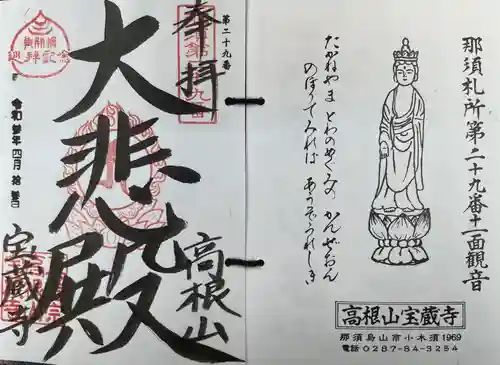 那須札所第二十九番十一面観音
たかねやま とわのめぐみの かんぜおん
のぼりてみれば あらぞうれしき
高根山宝蔵寺
那須烏山市小木須1969
電話0287-84-3254
第二十九番
奉拝
大悲殿
高根山
宝蔵寺